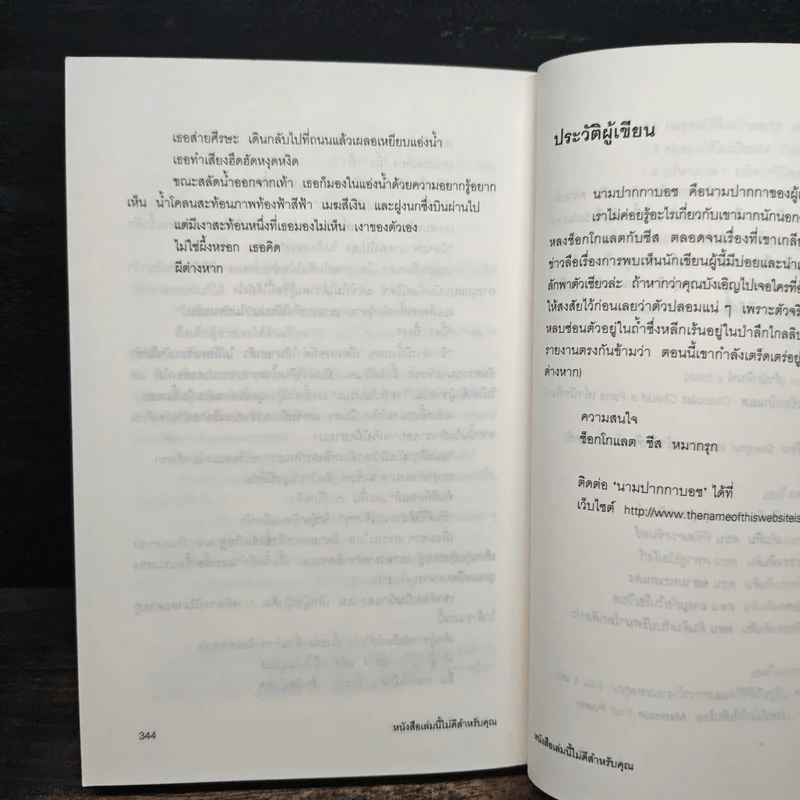 เธอส่ายศีรษะ เดินกลับไปที่ถนนแล้วเผลอเหยียบแอ่งน้ำ
เธอทำเสียงฮึดฮัดหงุดหงิด
ขณะสลัดน้ำออกจากเท้า เธอก็มองในแอ่งน้ำด้วยความอยากรู้อยาก
เห็น น้ำโคลนสะท้อนภาพท้องฟ้าสีฟ้า เมฆสีเงิน และฝูงนกซึ่งบินผ่านไป
แต่มีเงาสะท้อนหนึ่งที่เธอมองไม่เห็น เงาของตัวเอง
ไม่ใช่ผึ้งหรอก เธอคิด
ผีต่างหาก
344
หนังสือเล่มนี้ไม่ดีสำหรับคุณ
ประวัติผู้เขียน
นามปากกาบอช คือนามปากกาของผู้เ
เราไม่ค่อยรู้อะไรเกี่ยวกับเขามากนักนอก
หลงช็อกโกแลตกับชีส ตลอดจนเรื่องที่เขาเกลีย
ข่าวลือเรื่องการพบเห็นนักเขียนผู้นี้มีบ่อยและน่าเ
ลักพาตัวเชียวล่ะ ถ้าหากว่าคุณบังเอิญไปเจอใครที่
ให้สงสัยไว้ก่อนเลยว่าตัวปลอมแน่ ๆ เพราะตัวจริ
หลบซ่อนตัวอยู่ในถ้ำซึ่งหลีกเร้นอยู่ในป่าลึกไกลลิบ
รายงานตรงกันข้ามว่า ตอนนี้เขากำลังเตร็ดเตร่อยู่
ต่างหาก)
ความสนใจ
ช็อกโกแลต ชีส หมากรุก
ติดต่อ 'นามปากกาบอช' ได้ที่
เว็บไซต์ http://www.thenameofthiswebsiteis
หนังสือเล่มนี้ไม่ดีสำหรับคุณ